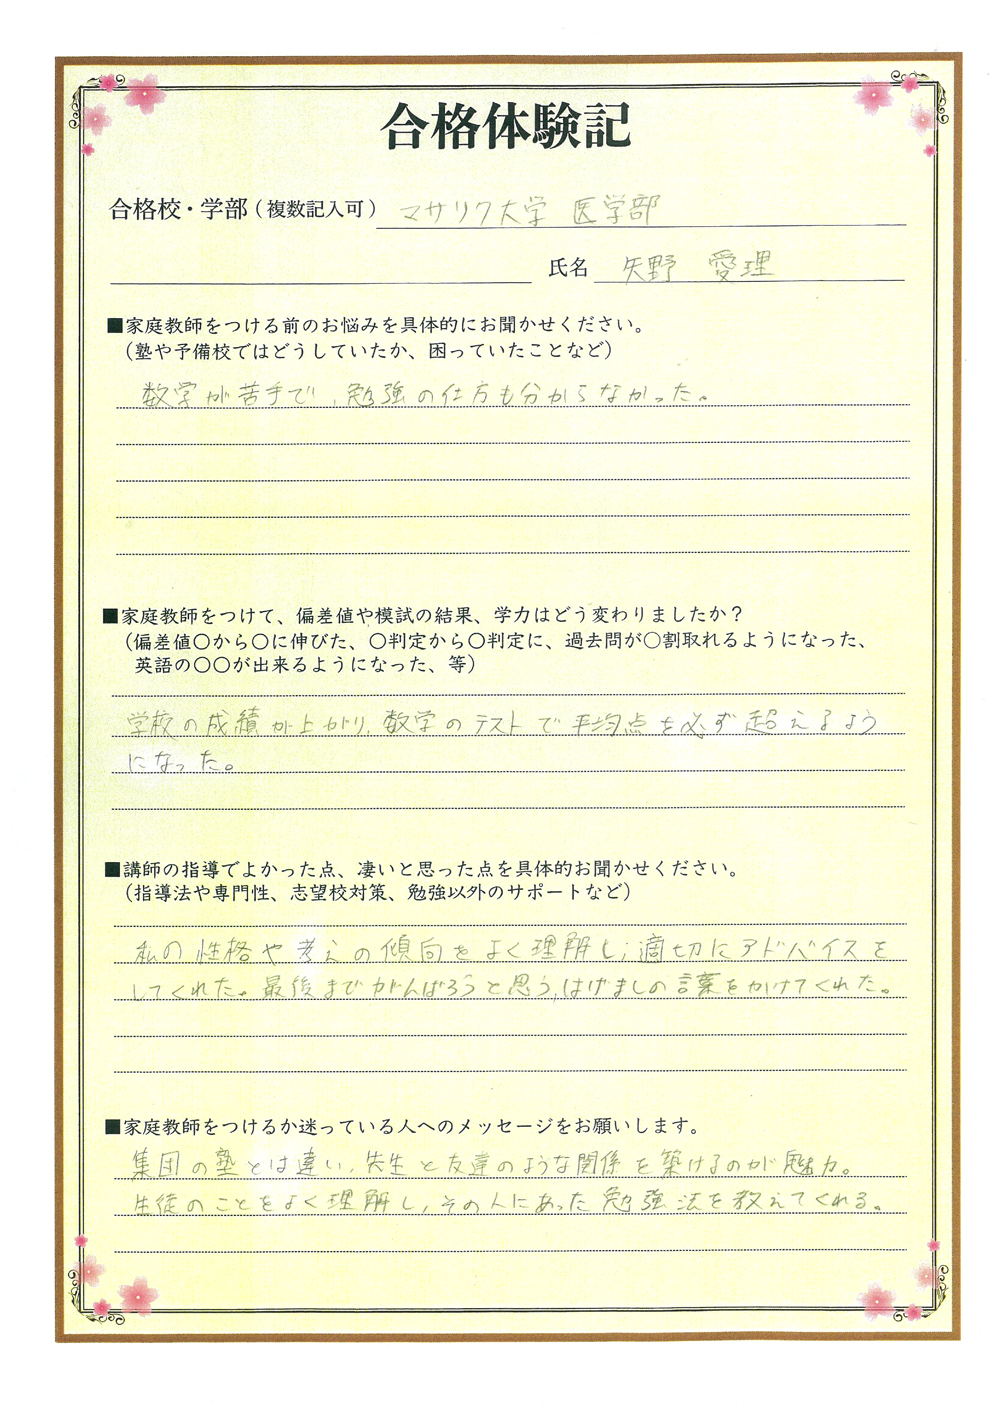 合格体験記
合格校・学部（複数記入可） マサリク大学 医学部
氏名 矢野 愛理
■家庭教師をつける前のお悩みを具体的にお聞かせください。
（塾や予備校ではどうしていたか、困っていたことなど）
数学が苦手で、勉強の仕方も分からなかった。
■家庭教師をつけて、偏差値や模試の結果、学力はどう変わりましたか？
（偏差値〇から〇に伸びた、〇判定から〇判定に、過去問が〇割取れるようになった、
英語の〇〇が出来るようになった、等）
学校の成績が上がり、数学のテストで平均点を必ず超えるよう
になった。
■講師の指導でよかった点、凄いと思った点を具体的お聞かせください。
（指導法や専門性、志望校対策、勉強以外のサポートなど）
私の性格や考えの傾向をよく理解し、適切にアドバイスを
してくれた。最後までがんばろうと思う、はげましの言葉をかけてくれた。
■家庭教師をつけるか迷っている人へのメッセージをお願いします。
集団の塾とは違い、先生と友達のような関係を築けるのが魅力。
生徒のことをよく理解し、その人にあった勉強法を教えてくれる。